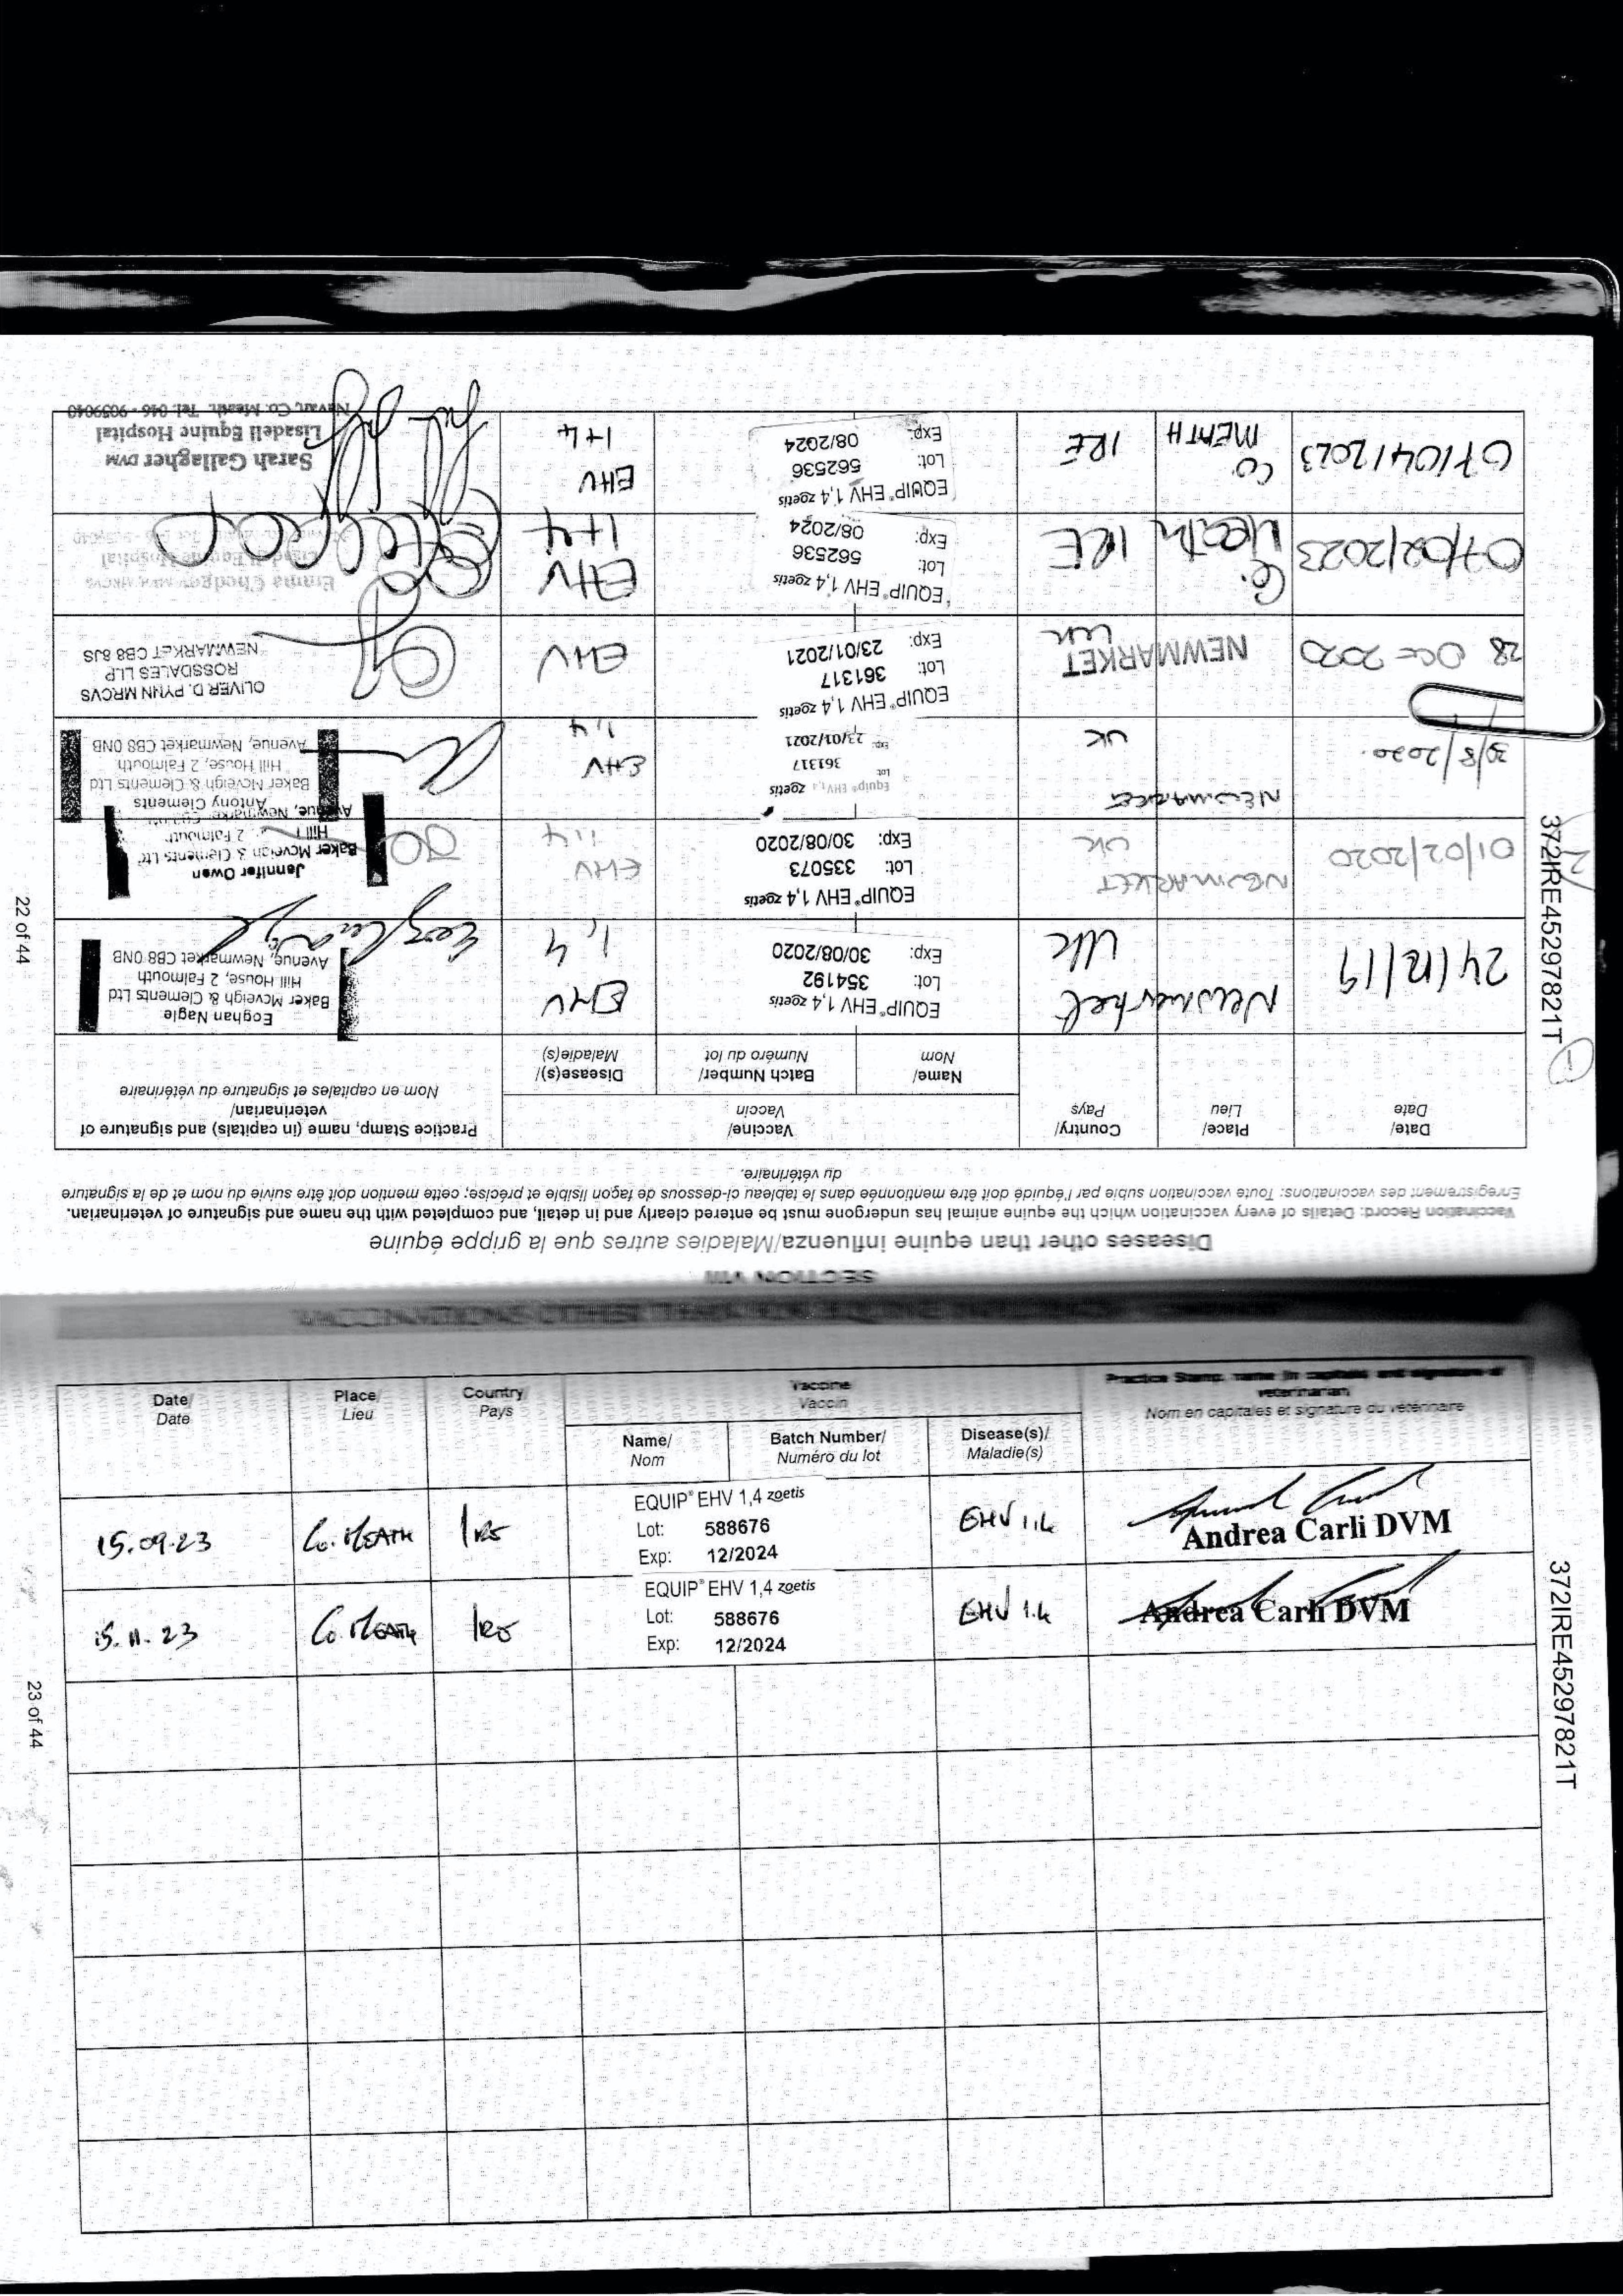 SECTION VIII
Diseases other than equine influenza/Maladies autres que la grippe équine
Vaccination Record: Details of every vaccination which the equine animal has undergone must be entered clearly and in detail, and completed with the name and signature of veterinarian.
Enregistrement des vaccinations: Toute vaccination subie par l'équidé doit être mentionnée dans le tableau ci-dessous de façon lisible et précise; cette mention doit être suivie du nom et de la signature
du vétérinaire.
Date/
Date
Place/
Lieu
Country/
Pays
Vaccine/
Vaccin
Name/
Nom
Batch Number/
Numéro du lot
Disease(s)/
Maladie(s)
Practice Stamp, name (in capitals) and signature of
veterinarian/
Nom en capitales et signature du vétérinaire
24/12/19
Newmarket
UK
EQUIP® EHV 1,4 zoetis
Lot: 354192
Exp: 30/08/2020
EHV
1,4
Eoghan Nagle
Baker Mcveigh & Clements Ltd
Hill House, 2 Falmouth
Avenue, Newmarket CB8 0NB
01/02/2020
NEWMARKET
UK
EQUIP® EHV 1,4 zoetis
Lot: 335073
Exp: 30/08/2020
EHV
1,4
Jennifer Owen
Baker Mcveigh & Clements Ltd
2 Falmouth
Avenue, Newmarket
30/8/2020.
NEWMARKET
UK
Equip® EHV 1,4 zoetis
Lot 361317
Exp: 23/01/2021
EHV
1,4
Antony Clements
Baker Mcveigh & Clements Ltd
Hill House, 2 Falmouth
Avenue, Newmarket CB8 0NB
28 Oct 2020
NEWMARKET
UK
EQUIP® EHV 1,4 zoetis
Lot: 361317
Exp: 23/01/2021
EHV
OLIVER D. PYNN MRCVS
ROSSDALES LLP
NEWMARKET CB8 8JS
07/02/2023
Co. Meath
IRE
EQUIP® EHV 1,4 zoetis
Lot: 562536
Exp: 08/2024
EHV
1+4
Lisadell Equine Hospital
07/04/2023
Co
MEATH
IRE
EQUIP® EHV 1,4 zoetis
Lot: 562536
Exp: 08/2024
EHV
1+4
Sarah Gallagher DVM
Lisadell Equine Hospital
Navan, Co. Meath. Tel: 046 - 9059040
372IRE45297821T
1
2
22 of 44
Date/
Date
Place/
Lieu
Country/
Pays
Vaccine
Vaccin
Name/
Nom
Batch Number/
Numéro du lot
Disease(s)/
Maladie(s)
Practice Stamp, name (in capitals) and signature of
veterinarian/
Nom en capitales et signature du vétérinaire
15.09.23
Co. MEATH
IRE
EQUIP® EHV 1,4 zoetis
Lot: 588676
Exp: 12/2024
EHV 1.4
Andrea Carli DVM
15.11.23
Co. MEATH
IRE
EQUIP® EHV 1,4 zoetis
Lot: 588676
Exp: 12/2024
EHV 1.4
Andrea Carli DVM
372IRE45297821T
23 of 44